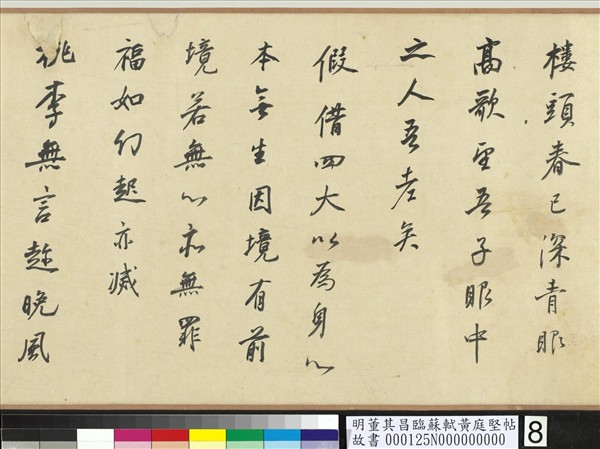 樓頭春已深青眼
高歌望吾子眼中
之人吾老矣
假借四大以為身心
本無生因境有前
境若無心亦無罪
福如幻起亦滅
桃李無言趁晚風
明董其昌臨蘇軾黃庭堅帖
故書 000125N000000000
8